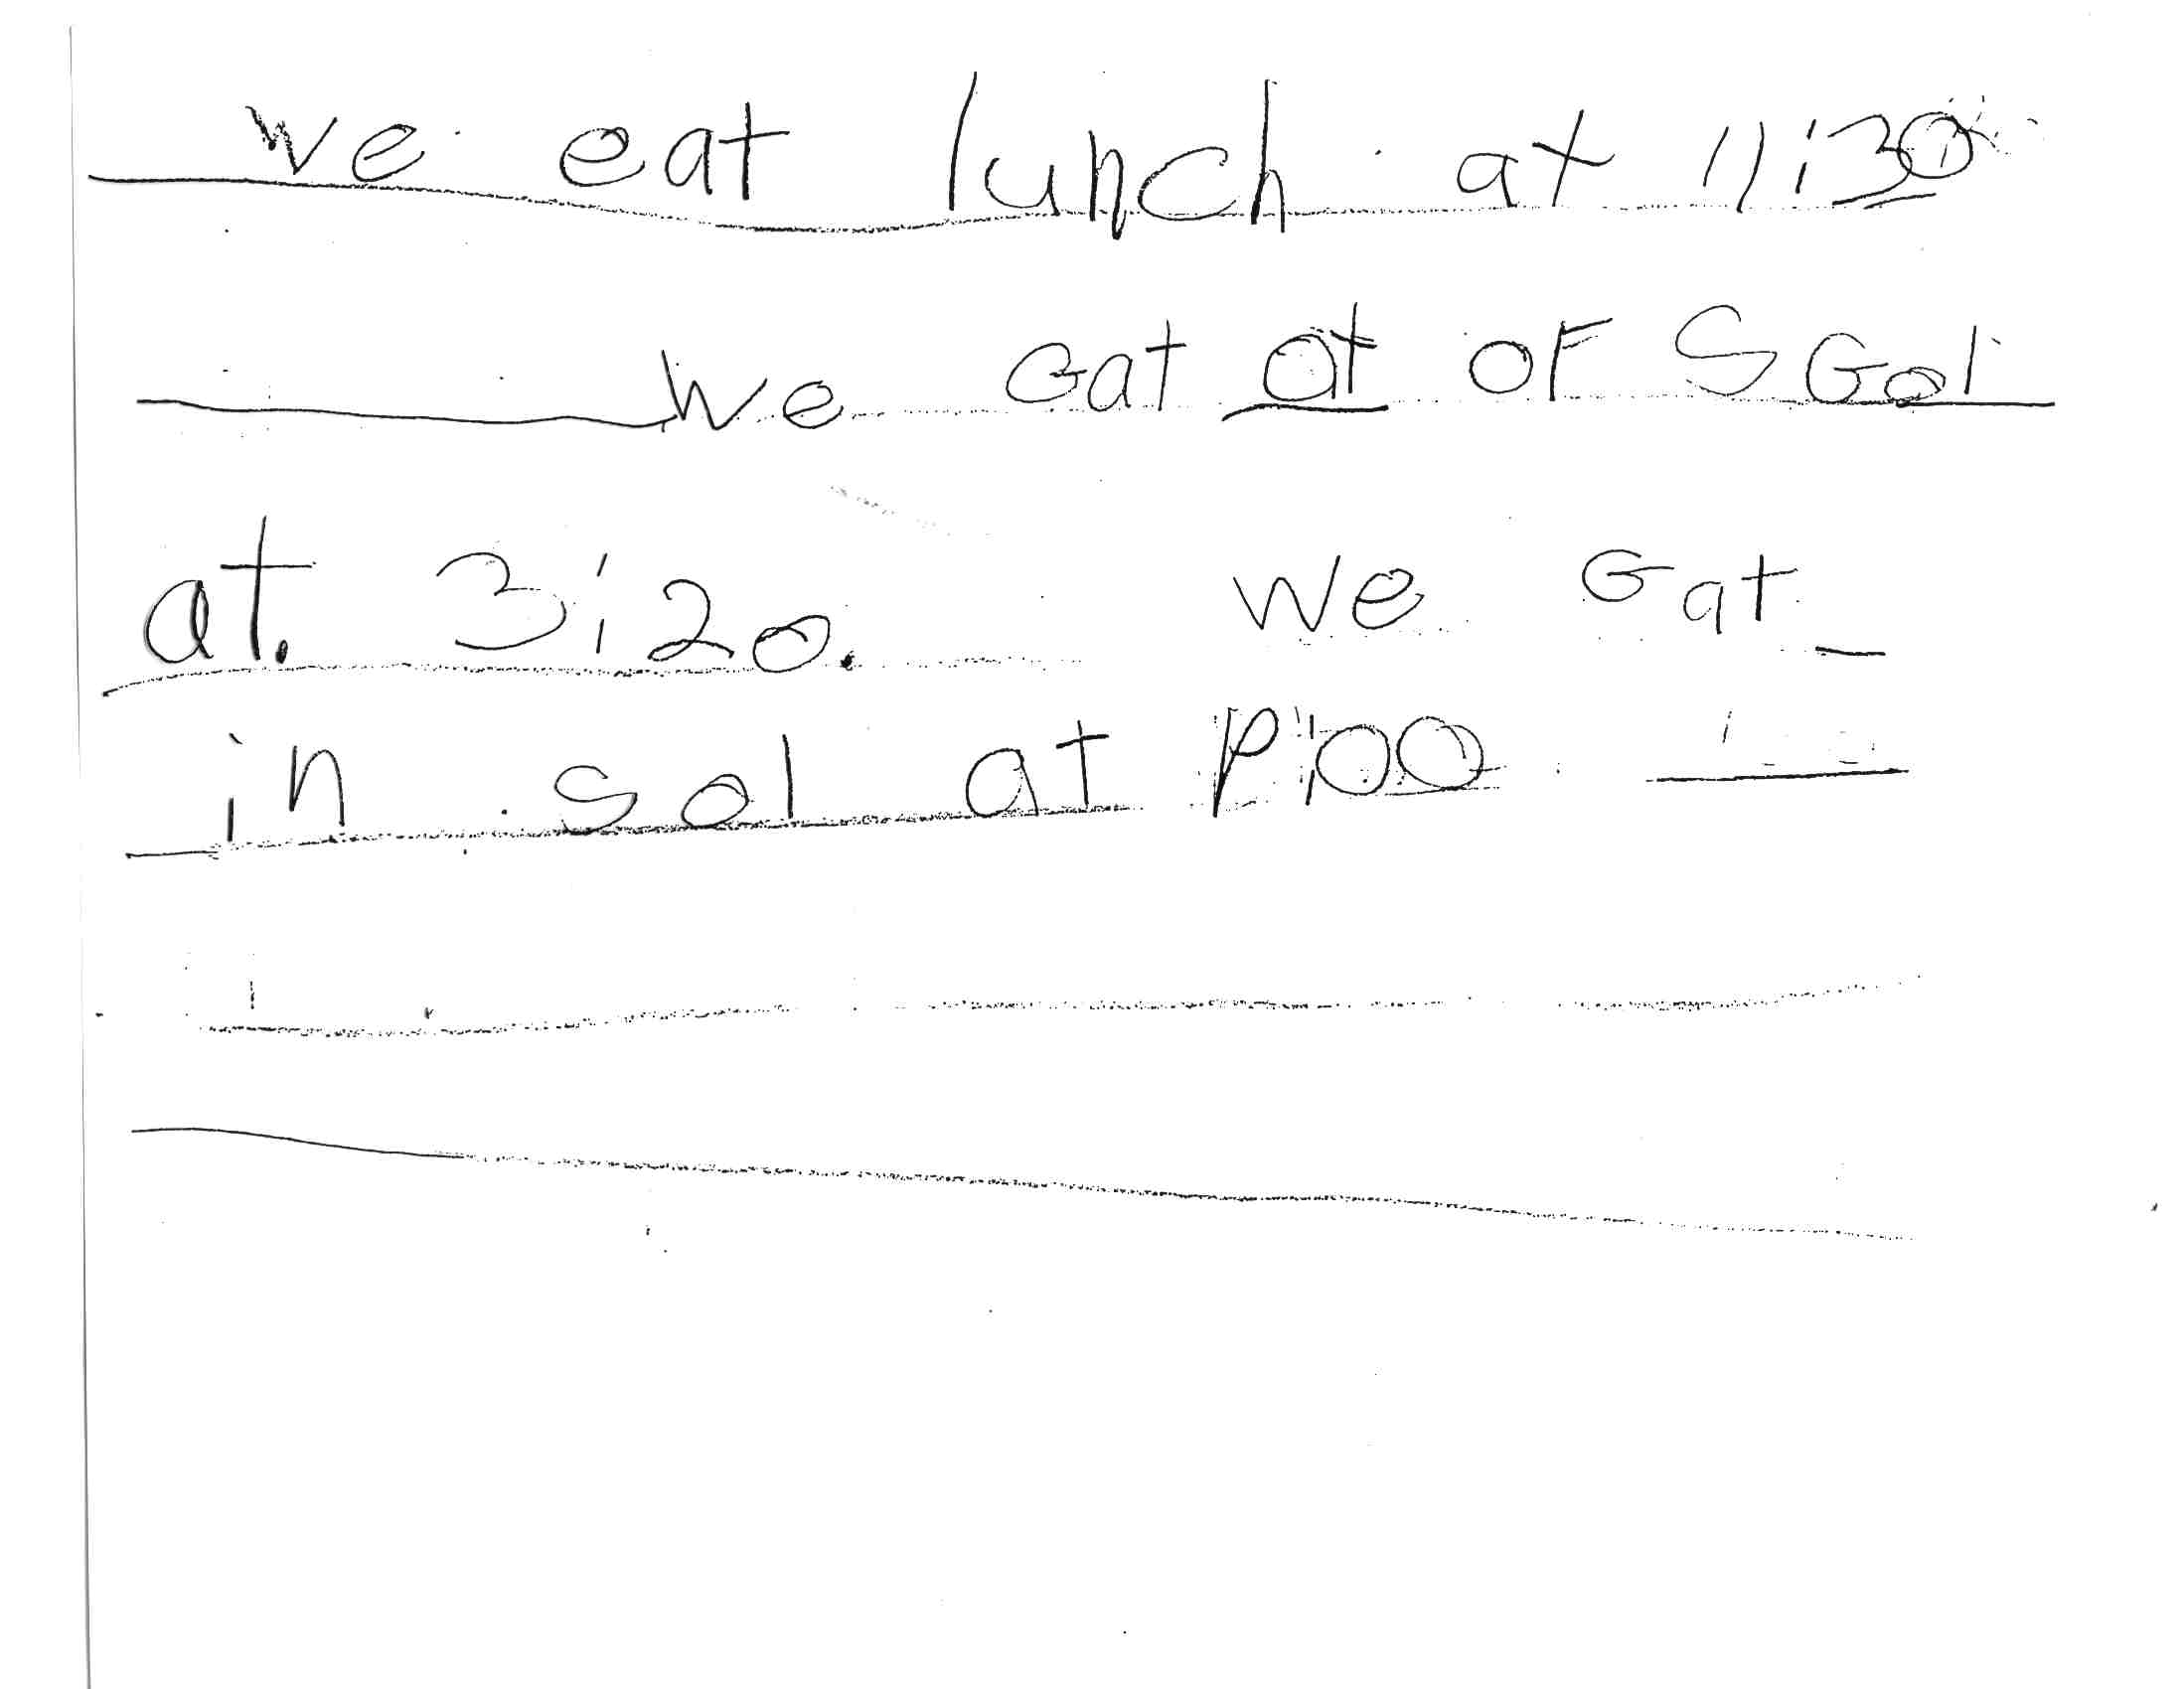 we eat lunch at 11:30
We Gat ot of SGol
at. 3:20. We Gat
in sol at P:00